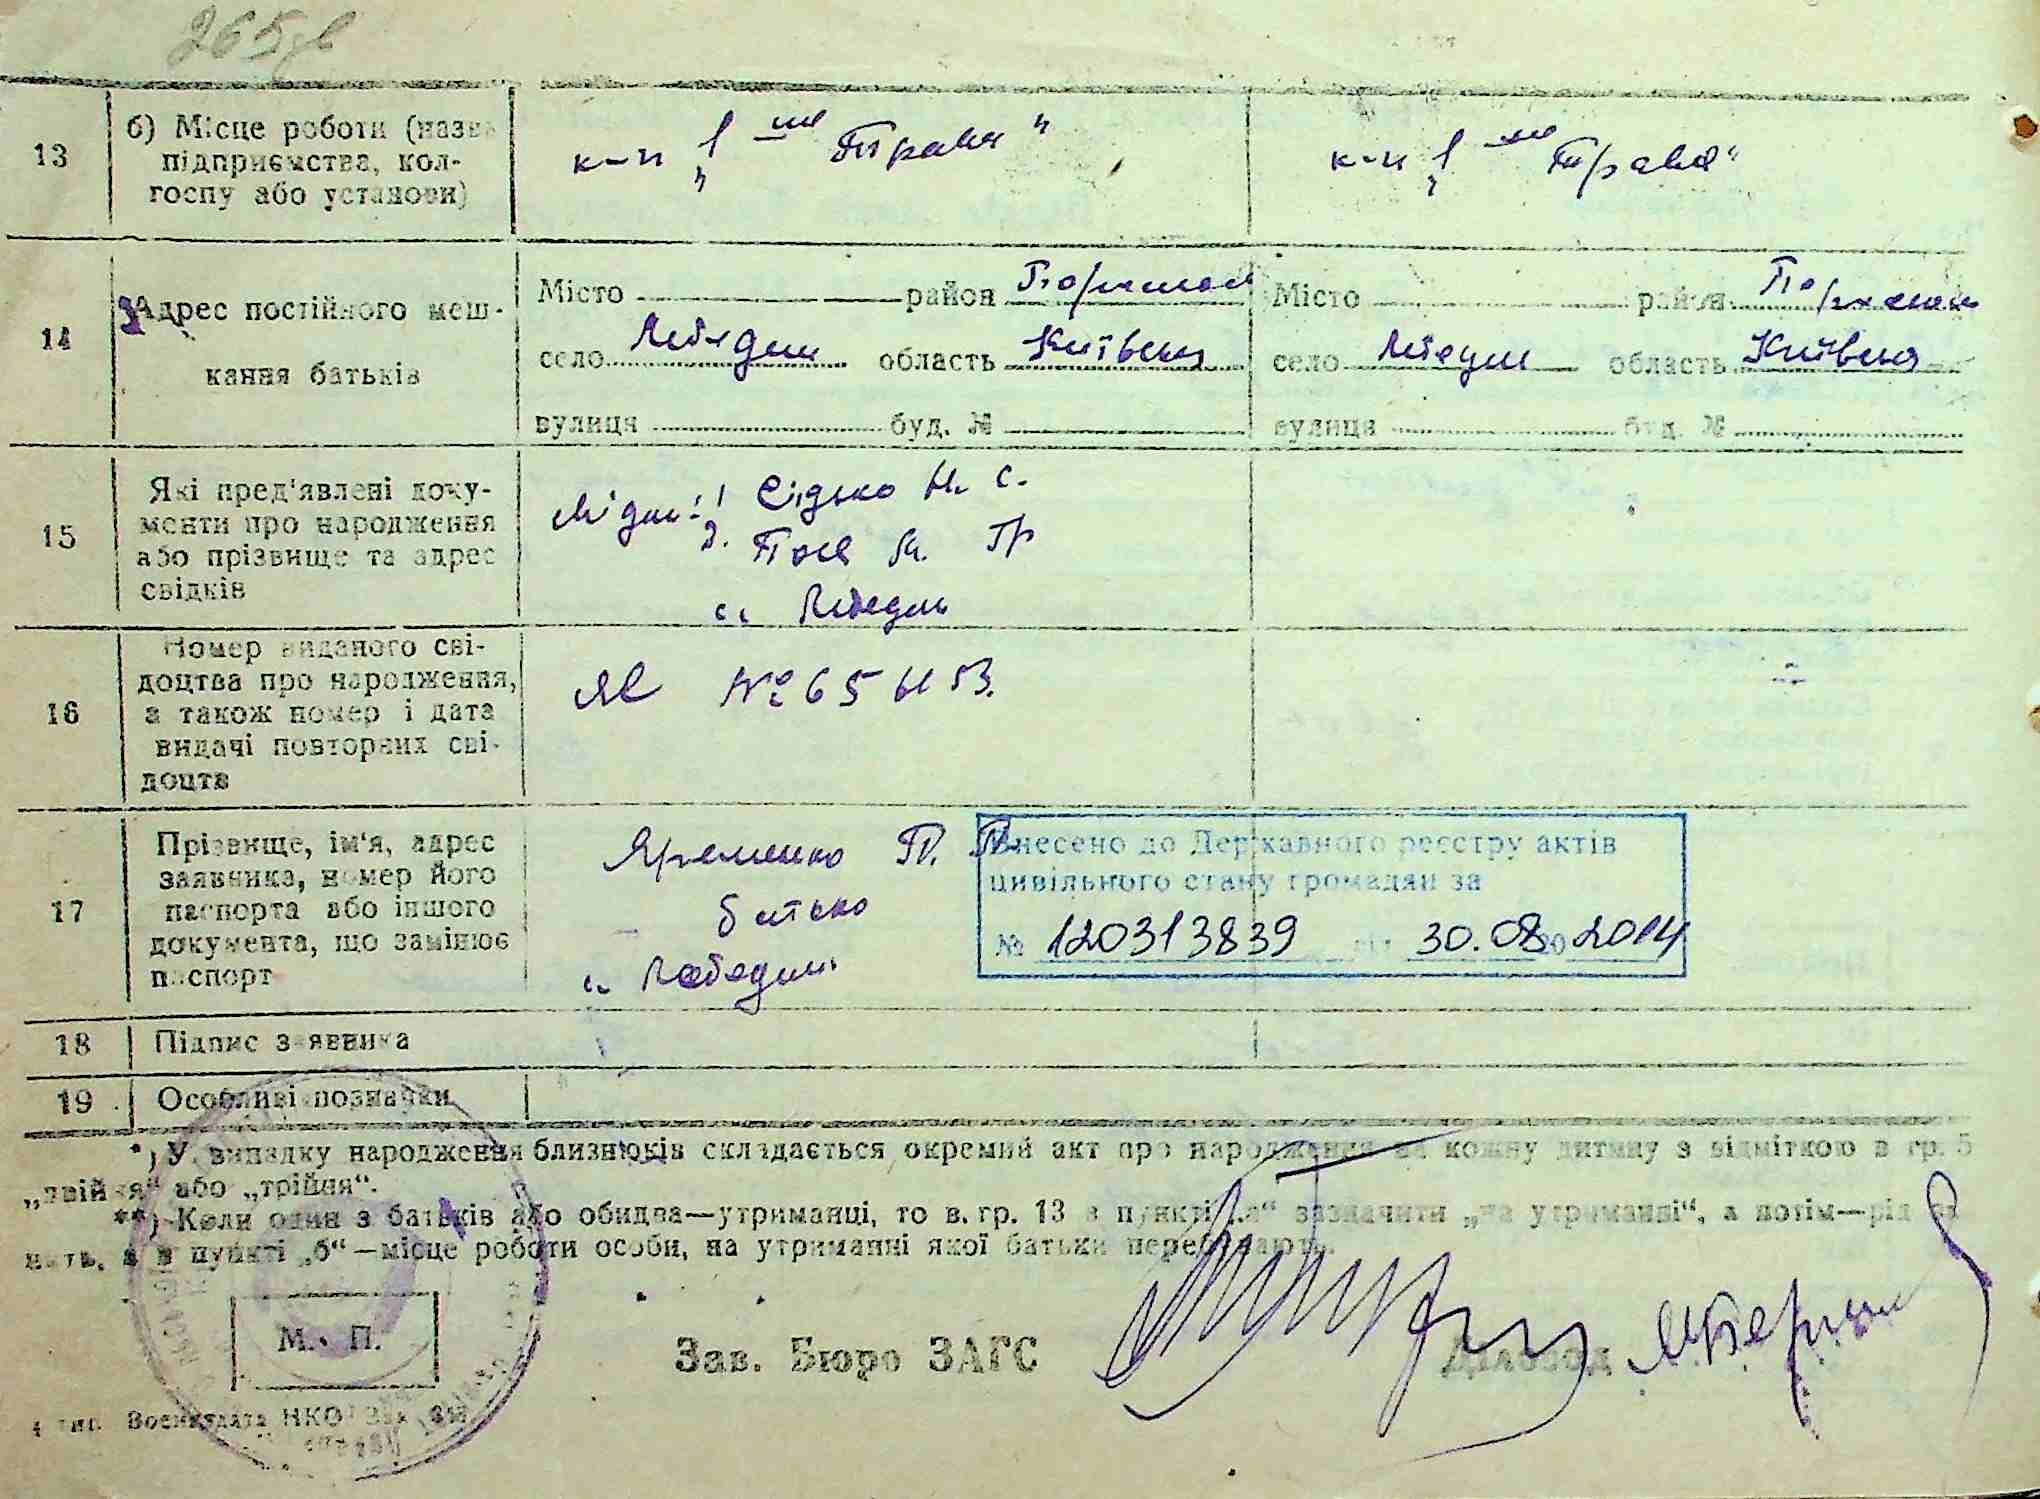 265
13
б) Місце роботи (назва
підприємства, кол-
госпу або установи)
к-п „1 ше Травня"
к-п „1 ше Травня"
14
Адрес постійного меш-
кання батьків
Місто район
село Лебедин область Київська
вулиця буд. №
Місто район
село Лебедин область Київська
вулиця буд. №
15
Які пред'явлені доку-
менти про народження
або прізвище та адрес
свідків
Свідки: 1 Сідько М. С.
2. М. Гр
с. Лебедин
16
Номер виданого сві-
доцтва про народження,
а також номер і дата
видачі повторних сві-
доцтв
№ 65
17
Прізвище, ім'я, адрес
заявника, номер його
паспорта або іншого
документа, що замінює
паспорт
Яременко П.
батько
с. Лебедин
Внесено до Державного реєстру актів
цивільного стану громадян за
№ 120313839 від 30.08.2014
18
Підпис заявника
19
Особливі позначки
*) У випадку народження близнюків складається окремий акт про народження на кожну дитину з відміткою в гр. 5
„двійня" або „трійня".
**) Коли один з батьків або обидва—утриманці, то в. гр. 13 в пункті „а" зазначити „на утриманні", а потім—рід за
нять, а в пункті „б"—місце роботи особи, на утриманні якої батьки перебувають.
М. П.
Зав. Бюро ЗАГС
Діловод
4 тип. Воениздата НКО Зак.